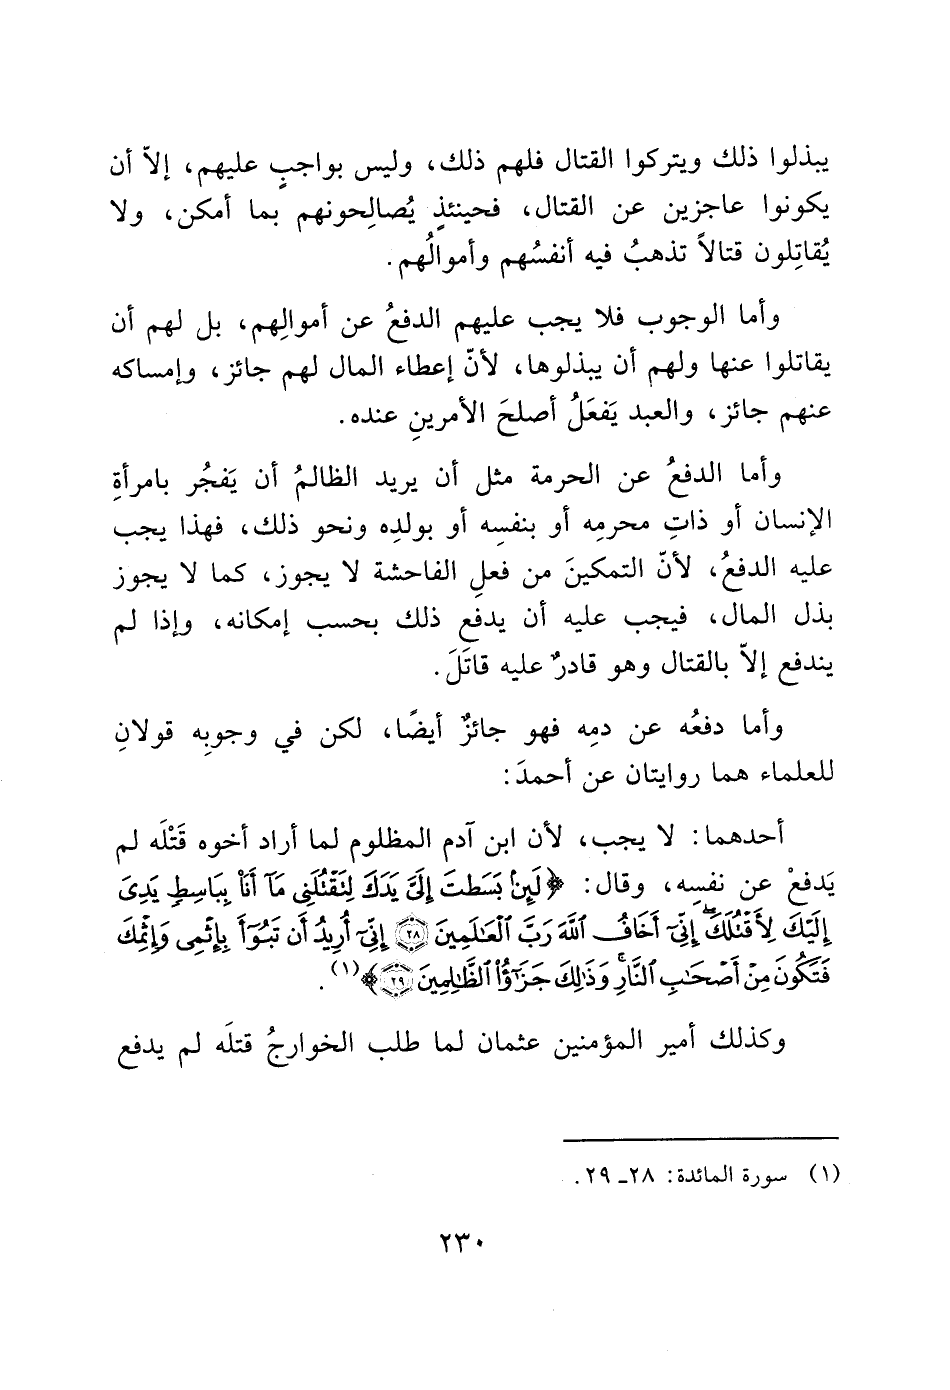 يبذلوا ذلك ويتركوا القتال فلهم ذلك، وليس بواجبٍ عليهم، إلاّ أن
يكونوا عاجزين عن القتال، فحينئذٍ يُصالِحونهم بما أمكن، ولا
يُقاتِلون قتالاً تذهبُ فيه أنفسُهم وأموالُهم.
وأما الوجوب فلا يجب عليهم الدفعُ عن أموالِهم، بل لهم أن
يقاتلوا عنها ولهم أن يبذلوها، لأنّ إعطاء المال لهم جائز، وإمساكه
عنهم جائز، والعبد يَفعَلُ أصلحَ الأمرينِ عنده.
وأما الدفعُ عن الحرمة مثل أن يريد الظالمُ أن يَفجُر بامرأةِ
الإنسان أو ذاتِ محرمِه أو بنفسِه أو بولدِه ونحو ذلك، فهذا يجب
عليه الدفعُ، لأنّ التمكينَ من فعلِ الفاحشة لا يجوز، كما لا يجوز
بذل المال، فيجب عليه أن يدفع ذلك بحسب إمكانه، وإذا لم
يندفع إلاّ بالقتال وهو قادرٌ عليه قاتَلَ.
وأما دفعُه عن دمِه فهو جائزٌ أيضًا، لكن في وجوبِه قولانِ
للعلماء هما روايتان عن أحمدَ:
أحدهما: لا يجب، لأن ابن آدم المظلوم لما أراد أخوه قَتْلَه لم
يَدفعْ عن نفسِه، وقال: ﴿لَئِنۢ بَسَطتَ إِلَيَّ يَدَكَ لِتَقۡتُلَنِي مَآ أَنَا۠ بِبَاسِطٖ يَدِيَ
إِلَيۡكَ لِأَقۡتُلَكَۖ إِنِّيٓ أَخَافُ ٱللَّهَ رَبَّ ٱلۡعَٰلَمِينَ ۝٢٨ إِنِّيٓ أُرِيدُ أَن تَبُوٓأَ بِإِثۡمِي وَإِثۡمِكَ
فَتَكُونَ مِنۡ أَصۡحَٰبِ ٱلنَّارِۚ وَذَٰلِكَ جَزَٰٓؤُاْ ٱلظَّٰلِمِينَ ۝٢٩﴾(١).
وكذلك أمير المؤمنين عثمان لما طلب الخوارجُ قتلَه لم يدفع
(١) سورة المائدة: ٢٨ـ ٢٩.
٢٣٠